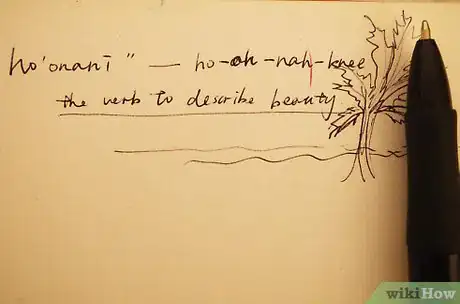 ho'onanī" — ho-oh-nah-knee
the verb to describe beauty
wikiHow